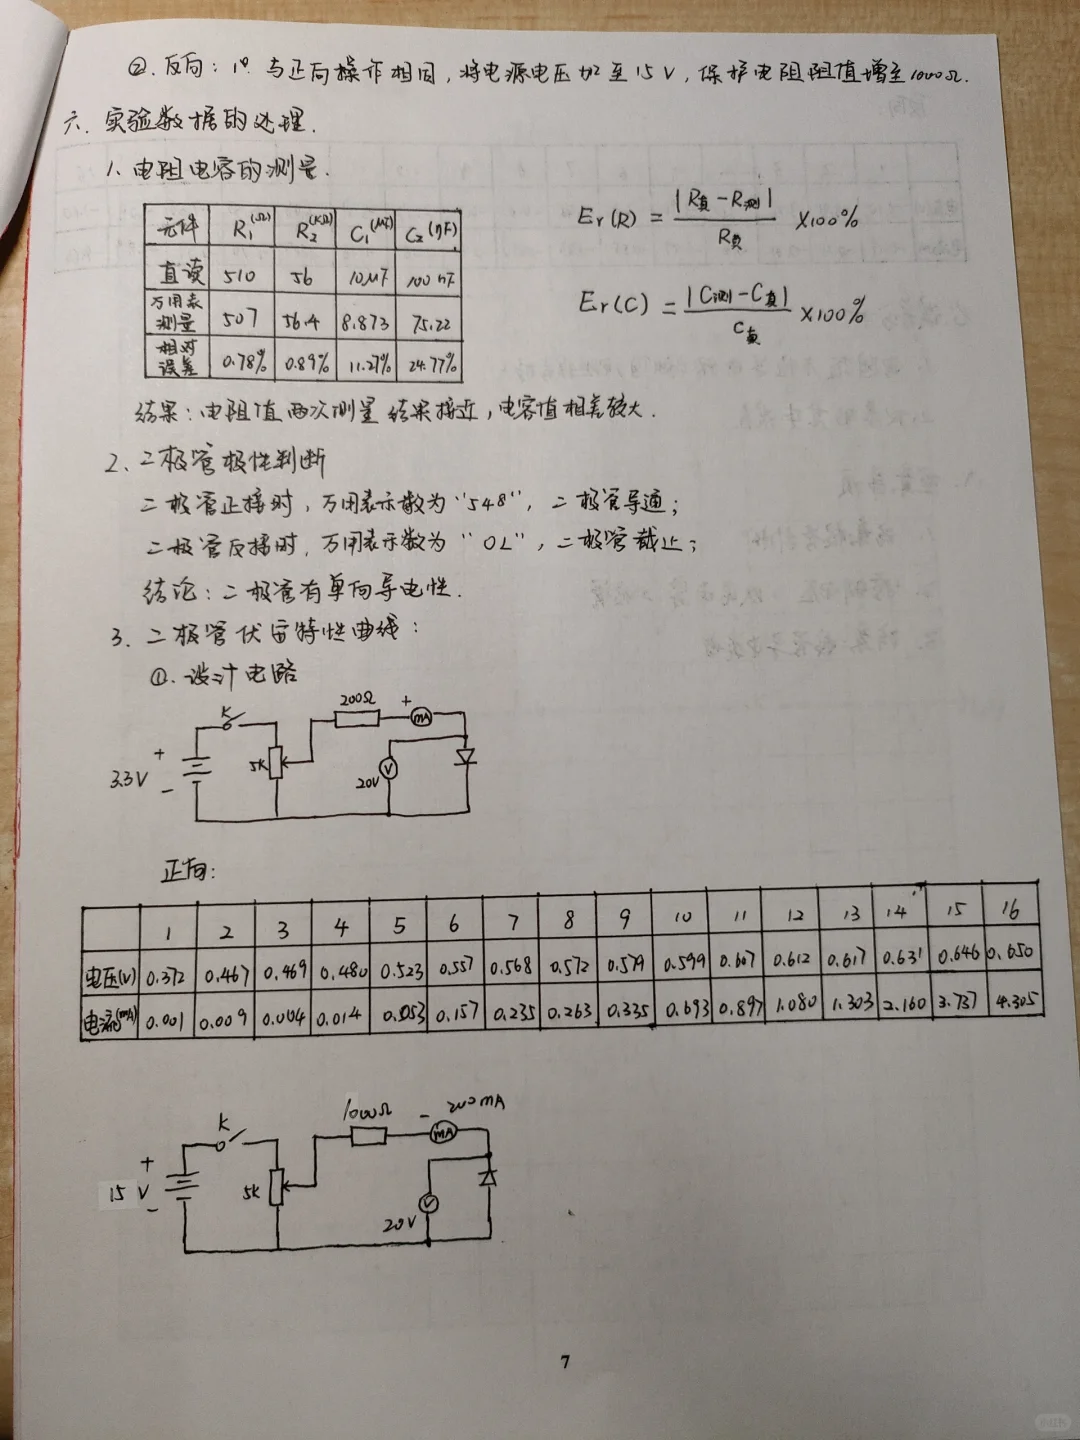 ②. 反向：1°. 与正向操作相同，将电源电压加至15V，保护电阻阻值增至1000Ω.
六. 实验数据的处理.
1、电阻电容的测量.
元件 R₁(Ω) R₂(KΩ) C₁(μF) C₂(ηF)
直读 510 56 10μF 100nF
万用表测量 507 56.4 8.873 75.22
相对误差 0.78% 0.89% 11.27% 24.77%
Er(R) = |R真-R测| / R真 ×100%
Er(C) = |C测-C真| / C真 ×100%
结果：电阻值两次测量结果接近，电容值相差较大.
2、二极管极性判断
二极管正接时，万用表示数为“548”，二极管导通；
二极管反接时，万用表示数为“OL”，二极管截止；
结论：二极管有单向导电性.
3、二极管伏安特性曲线：
①. 设计电路
K 200Ω + mA
+ 3.3V - 5K 20V V
正向：
1 2 3 4 5 6 7 8 9 10 11 12 13 14 15 16
电压(V) 0.372 0.467 0.469 0.480 0.523 0.557 0.568 0.572 0.579 0.599 0.607 0.612 0.617 0.631 0.646 0.650
电流(mA) 0.001 0.009 0.004 0.014 0.053 0.157 0.235 0.263 0.335 0.693 0.897 1.080 1.303 2.160 3.737 4.305
K 1000Ω - mA 200mA
+ 15V - 5K 20V V
7